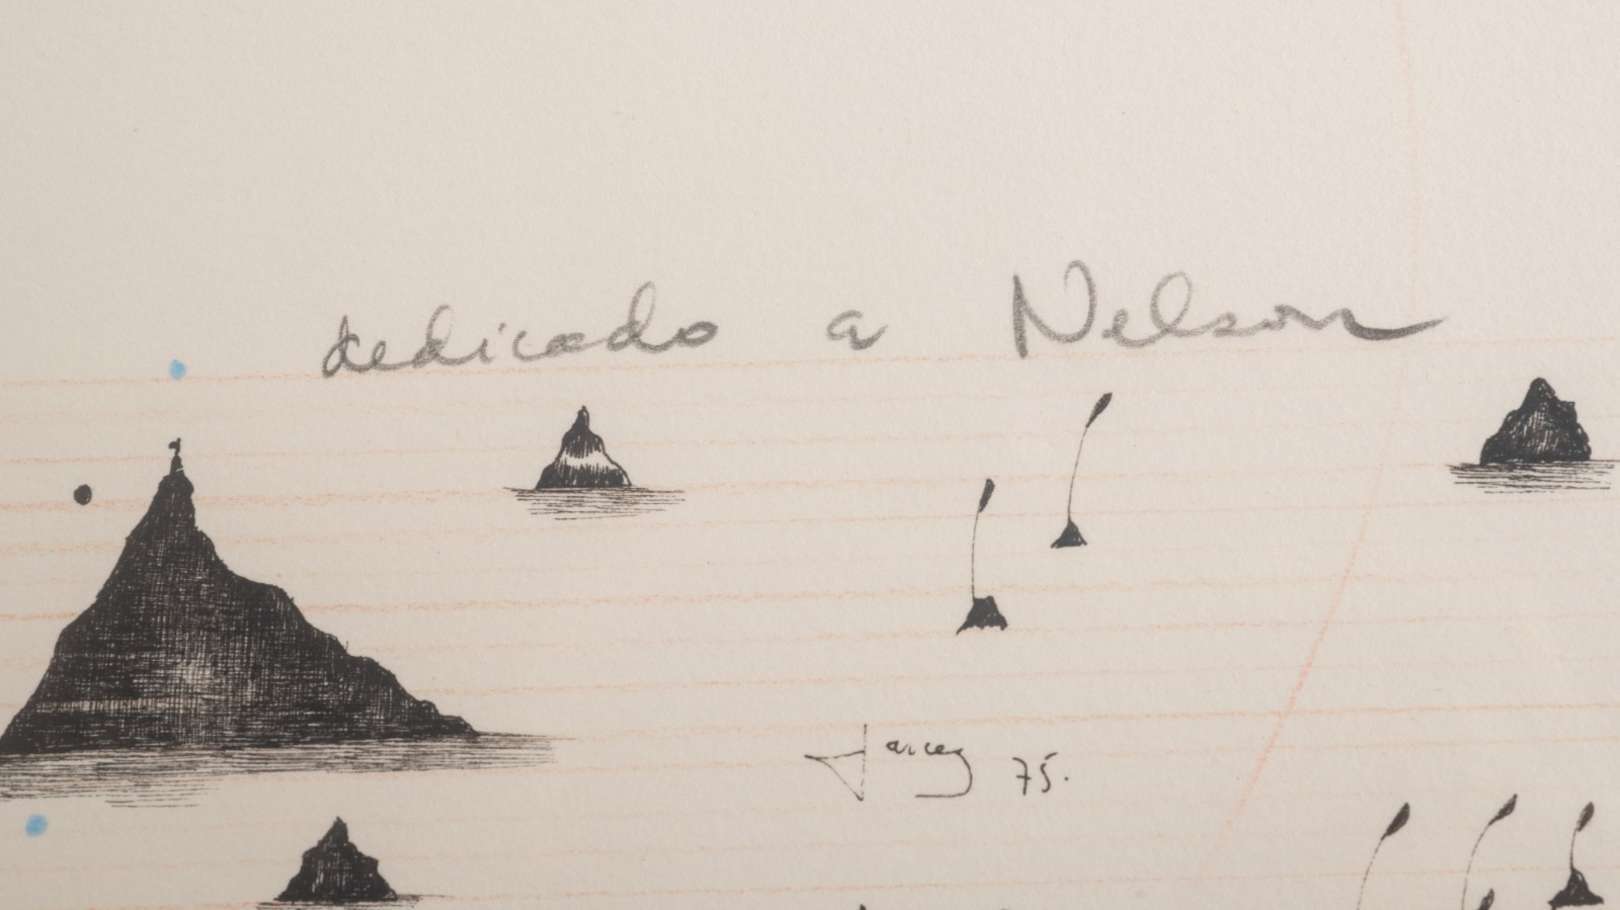 dedicado a Nelson
Garcez 75.